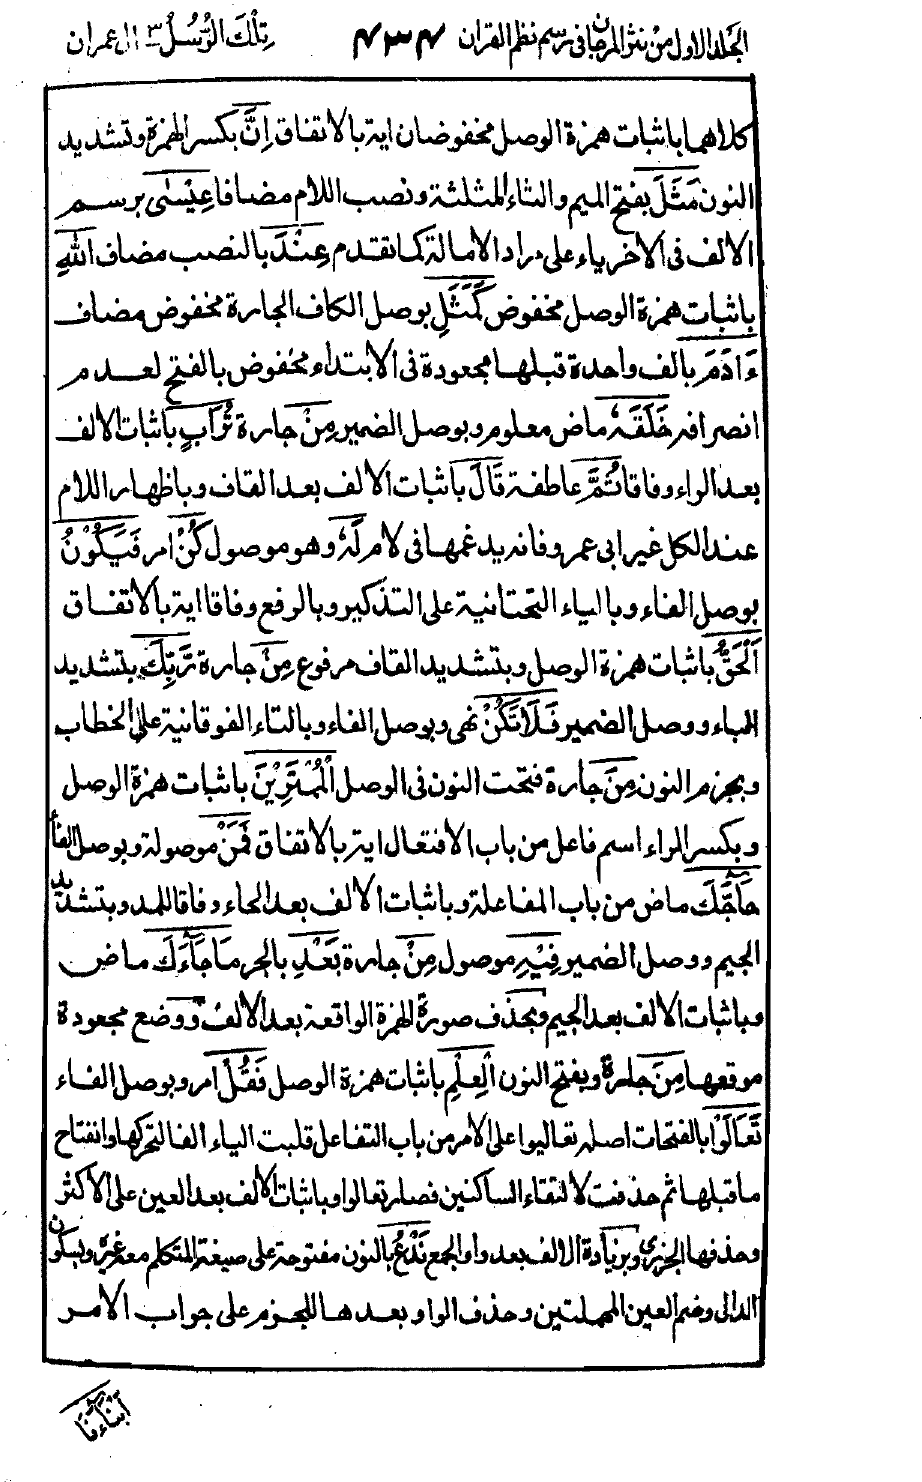 الجلد الاول من نثر المرجان فی رسم نظم القران ٤٣٤ تِلْكَ الرُّسُلُ ٣ ال عمران
كلاهما باثبات همزة الوصل مخفوضان اية بالاتفاق اِنَّ بكسر الهمزة وتشديد
النون مَثَلَ بفتح الميم والثاء المثلثة ونصب اللام مضافا عِيْسٰى برسم
الالف فى الاخر ياء على مراد الامالة كما تقدم عِنْدَ بالنصب مضاف اللّٰهِ
باثبات همزة الوصل مخفوض كَمَثَلِ بوصل الكاف الجارة مخفوض مضاف
ءَادَمَ بالف واحدة قبلها مجعودة فى الابتداء مخفوض بالفتح لعدم
انصرافه خَلَقَهٗ ماض معلوم وبوصل الضمير مِنْ جارة تُرَابٍ باثبات الالف
بعد الراء وفاقا ثُمَّ عاطفة قَالَ باثبات الالف بعد القاف وباظهار اللام
عند الكل غير ابى عمرو فانه يدغمها فى لام لَهٗ وهو موصول كُنْ امر فَيَكُوْنُ
بوصل الفاء وبالياء التحتانية على التذكير وبالرفع وفاقا اية بالاتفاق
اَلْحَقُّ باثبات همزة الوصل وبتشديد القاف مرفوع مِنْ جارة رَّبِّكَ بتشديد
الباء ووصل الضمير فَلَا تَكُنْ نهى وبوصل الفاء وبالتاء الفوقانية على الخطاب
وبجزم النون مِنَ جارة فتحت النون فى الوصل الْمُمْتَرِيْنَ باثبات همزة الوصل
وبكسر الراء اسم فاعل من باب الافتعال اية بالاتفاق فَمَنْ موصولة وبوصل الفاء
حَاجَّكَ ماض من باب المفاعلة وباثبات الالف بعد الحاء وفاقا للمد وبتشديد
الجيم ووصل الضمير فِيْهِ موصول مِنْ جارة بَعْدِ بالجر مَا جَآءَكَ ماض
وباثبات الالف بعد الجيم وبحذف صورة الهمزة الواقعة بعد الالف ووضع مجعودة
موقعها مِنَ جارة وبفتح النون الْعِلْمِ باثبات همزة الوصل فَقُلْ امر وبوصل الفاء
تَعَالَوْا بالفتحات اصله تعاليوا على الامر من باب التفاعل قلبت الياء الفا لتحركها وانفتاح
ما قبلها ثم حذفت لالتقاء الساكنين فصار تعالوا وباثبات الالف بعد العين على الاكثر
وحذفها الجزرى وبزيادة الالف بعد واو الجمع نَدْعُ بالنون مفتوحة على صيغة المتكلم مع غيره وبسكون
الدال وضم العين المهملتين وحذف الواو بعدها للجزم على جواب الامر
اَبْنَآءَنَا